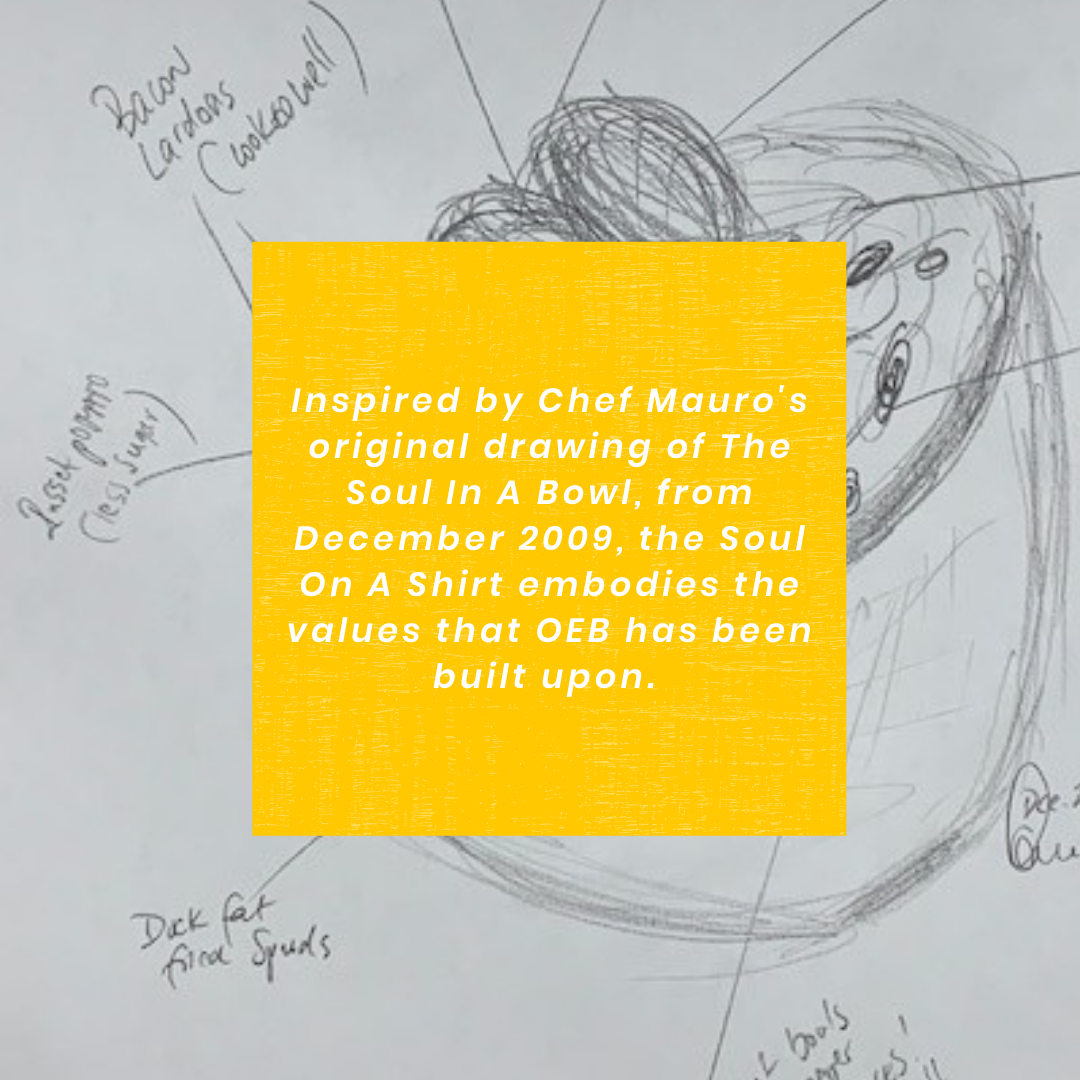 Bacon
Lardons
(cooked well)
Inspired by Chef Mauro's
original drawing of The
Soul In A Bowl, from
December 2009, the Soul
On A Shirt embodies the
values that OEB has been
built upon.
(less sugar)
Duck fat
fried Spuds
bowls